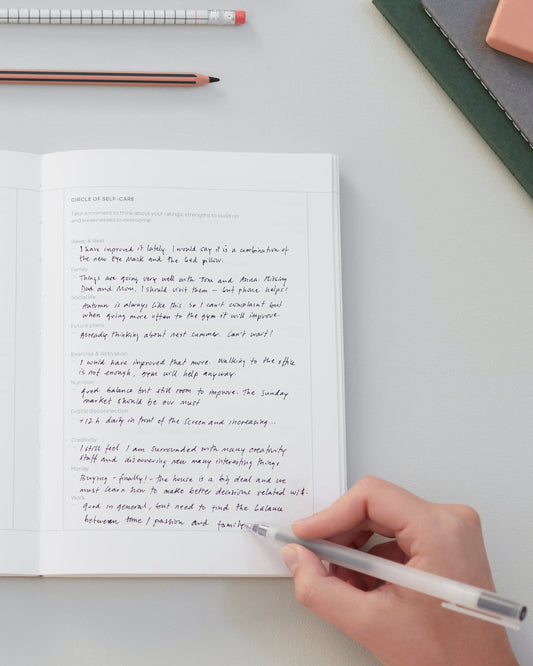 CIRCLE OF SELF-CARE
Take a moment to think about your ratings: strengths to build on
and weaknesses to overcome.
Sleep & Rest
I have improved it lately. I would say it is a combination of
the new Eye Mask and the bed pillow.
Family
Things are going very well with Tom and Anna. Missing
Dad and Mom, I should visit them – but phone helps!
Social life
Autumn is always like this so I can't complaint but
when going more often to the gym it will improve.
Future plans
Already thinking about next summer. Can't wait!
Exercise & Activation
I would have improved that more. Walking to the office
is not enough, gym will help anyway.
Nutrition
good balance but still room to improve. The Sunday
market should be our must
Digital disconnection
+12 h daily in front of the screen and increasing...
Creativity
I still feel I am surrounded with many creativity
stuff and discovering new many interesting things
Money
Buying – finally! – the house is a big deal and we
must learn how to make better decisions related w/$.
Work
good in general, but need to find the balance
between time / passion and family